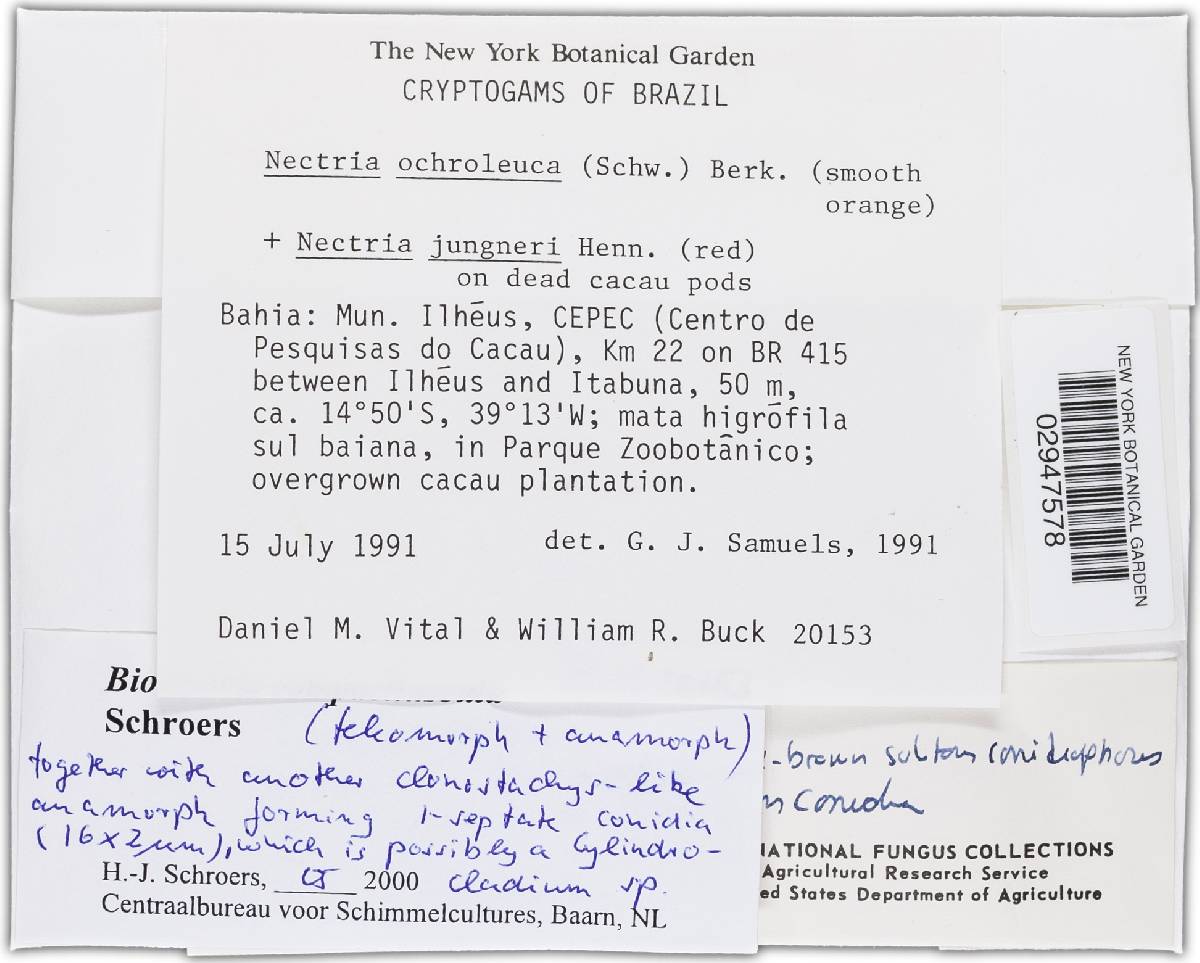 The New York Botanical Garden
CRYPTOGAMS OF BRAZIL
Nectria ochroleuca (Schw.) Berk. (smooth
orange)
+ Nectria jungneri Henn. (red)
on dead cacau pods
Bahia: Mun. Ilhéus, CEPEC (Centro de
Pesquisas do Cacau), Km 22 on BR 415
between Ilhéus and Itabuna, 50 m,
ca. 14°50'S, 39°13'W; mata higrófila
sul baiana, in Parque Zoobotânico;
overgrown cacau plantation.
15 July 1991 det. G. J. Samuels, 1991
Daniel M. Vital & William R. Buck 20153
NEW YORK BOTANICAL GARDEN
02947578
Bio
Schroers (teleomorph + anamorph)
together with another clonostachys-like
anamorph forming 1-septate conidia
(16×2µm), which is possibly a Cylindro-
H.-J. Schroers, 2000 cladium sp.
Centraalbureau voor Schimmelcultures, Baarn, NL
-brown conidiophores
conidia
NATIONAL FUNGUS COLLECTIONS
Agricultural Research Service
ed States Department of Agriculture